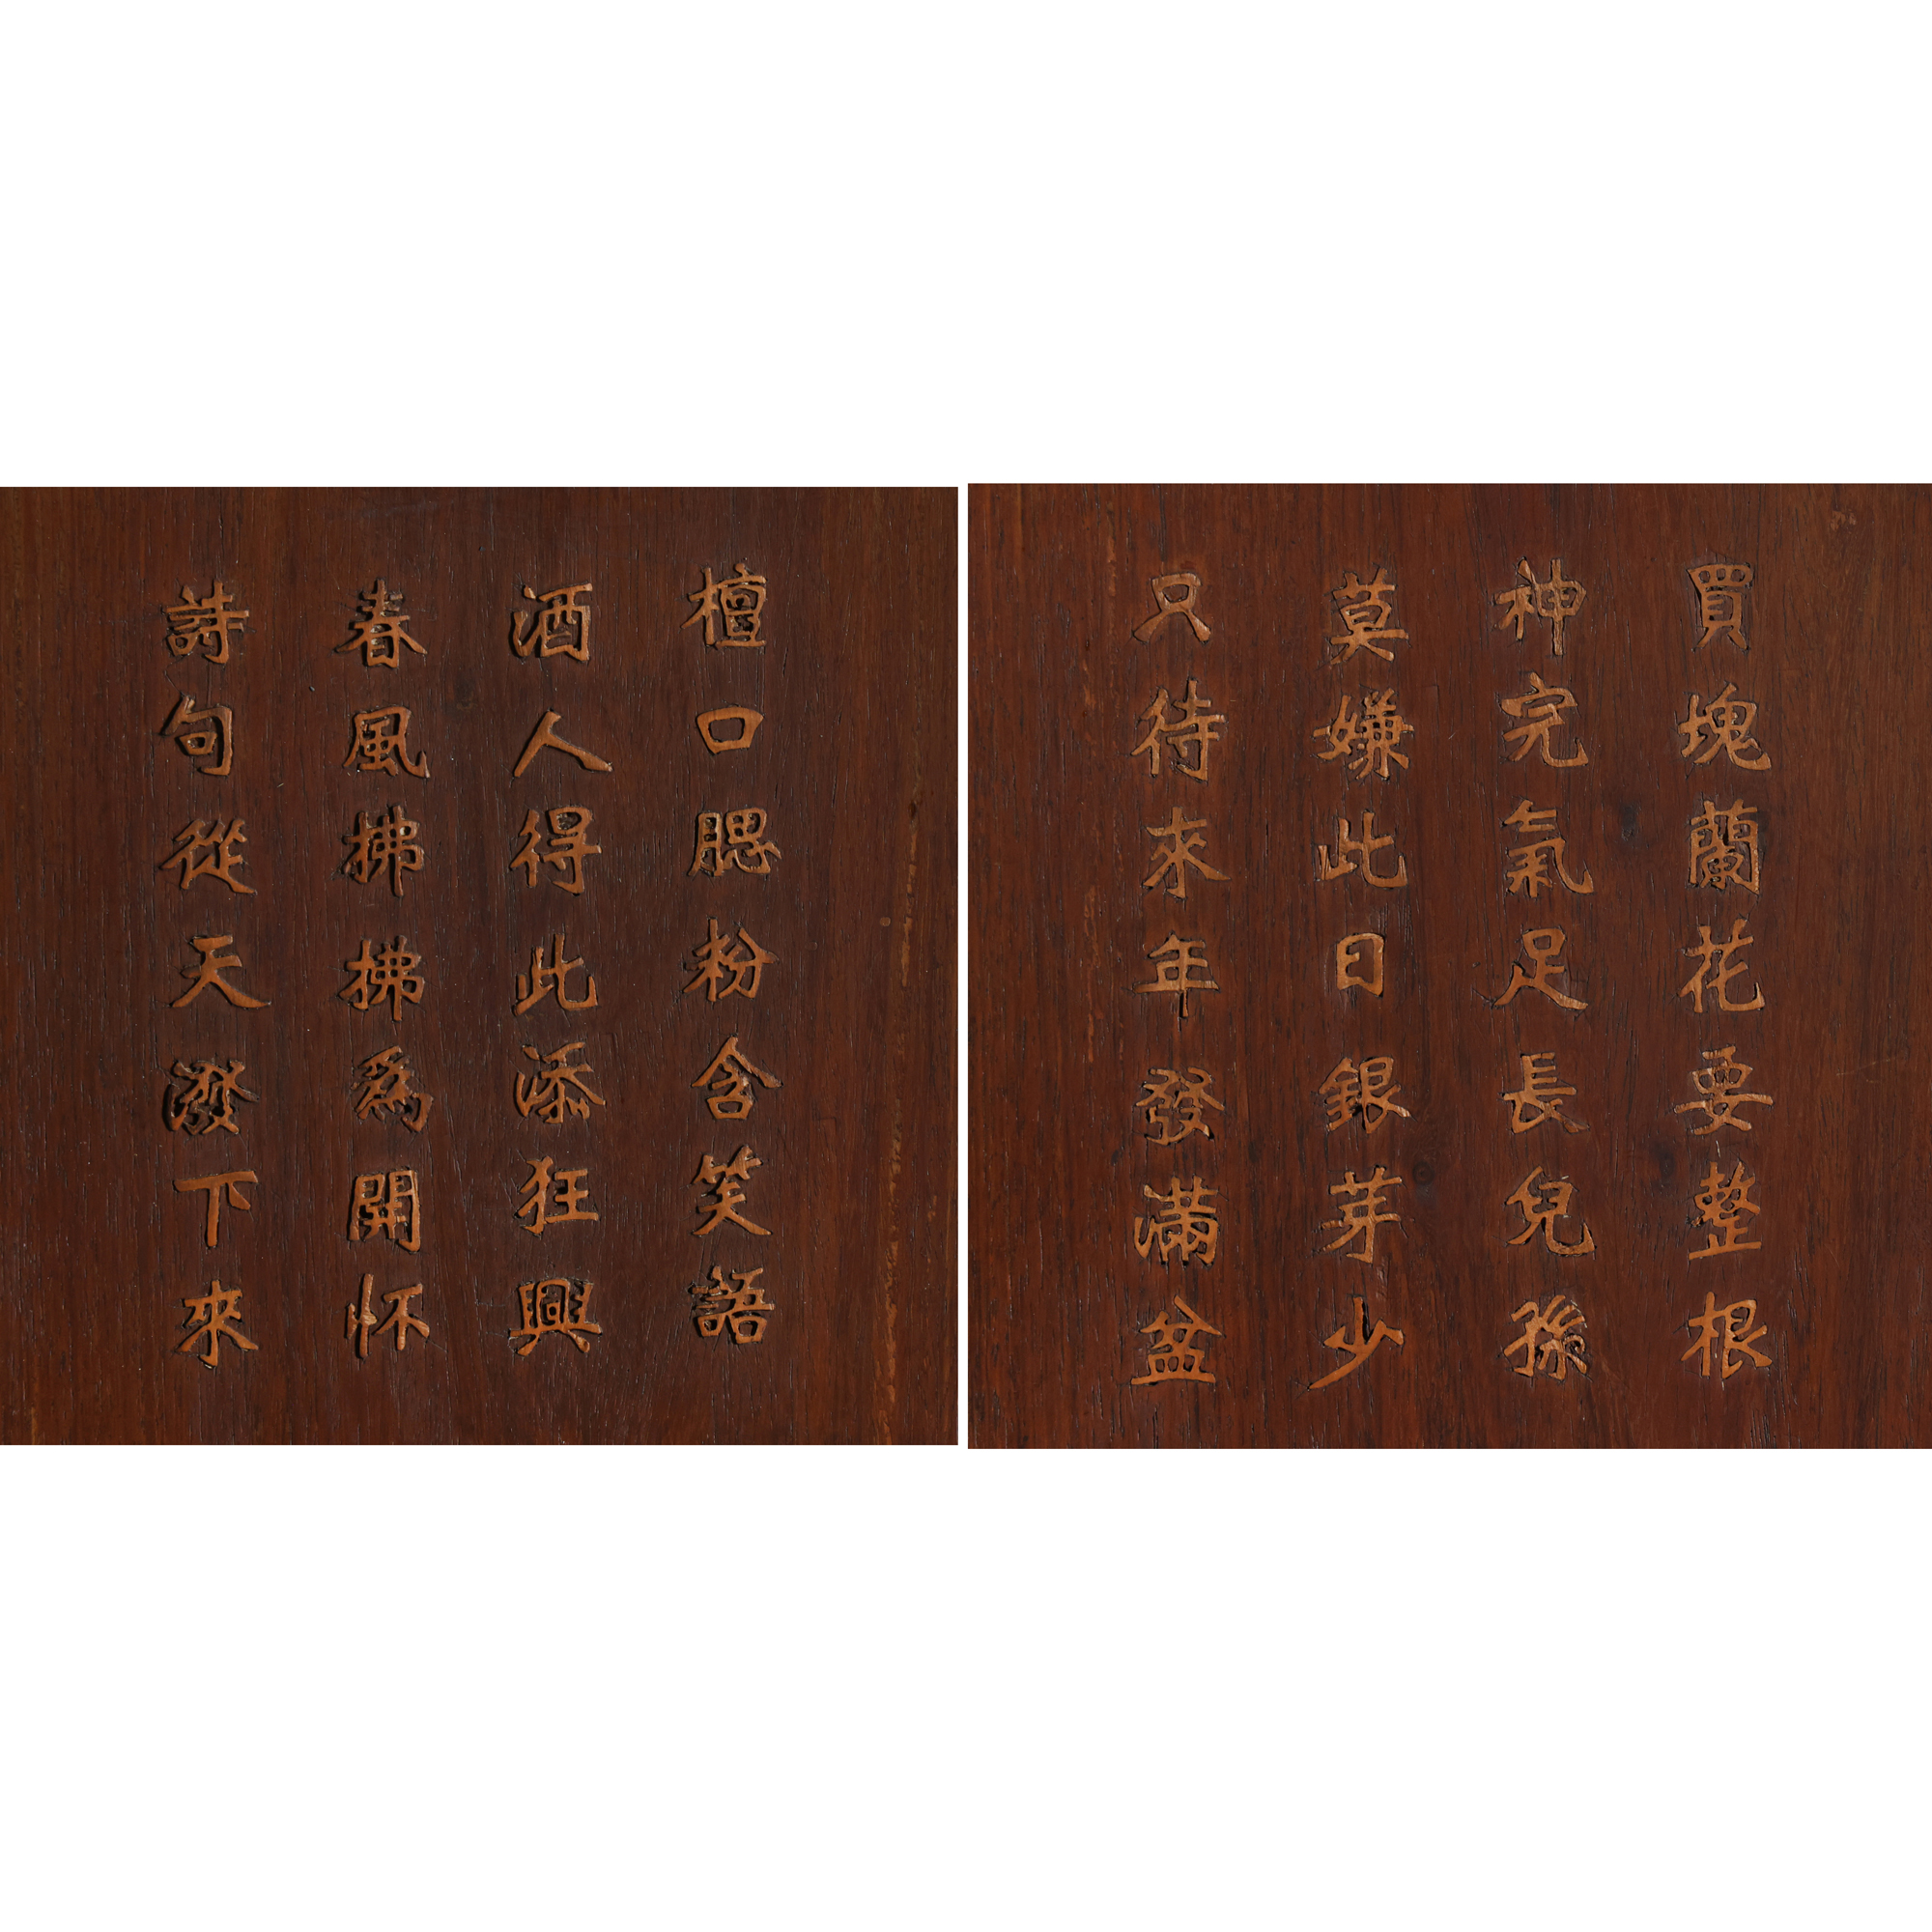 買塊蘭花要整根
神完氣足長兒孫
莫嫌此日銀芽少
只待來年發滿盆
檀口腮粉含笑語
酒人得此添狂興
春風拂拂為開懷
詩句從天潑下來